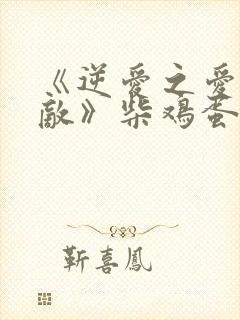 《逆爱之爱
敵》柴鸡蛋
靳喜鳳